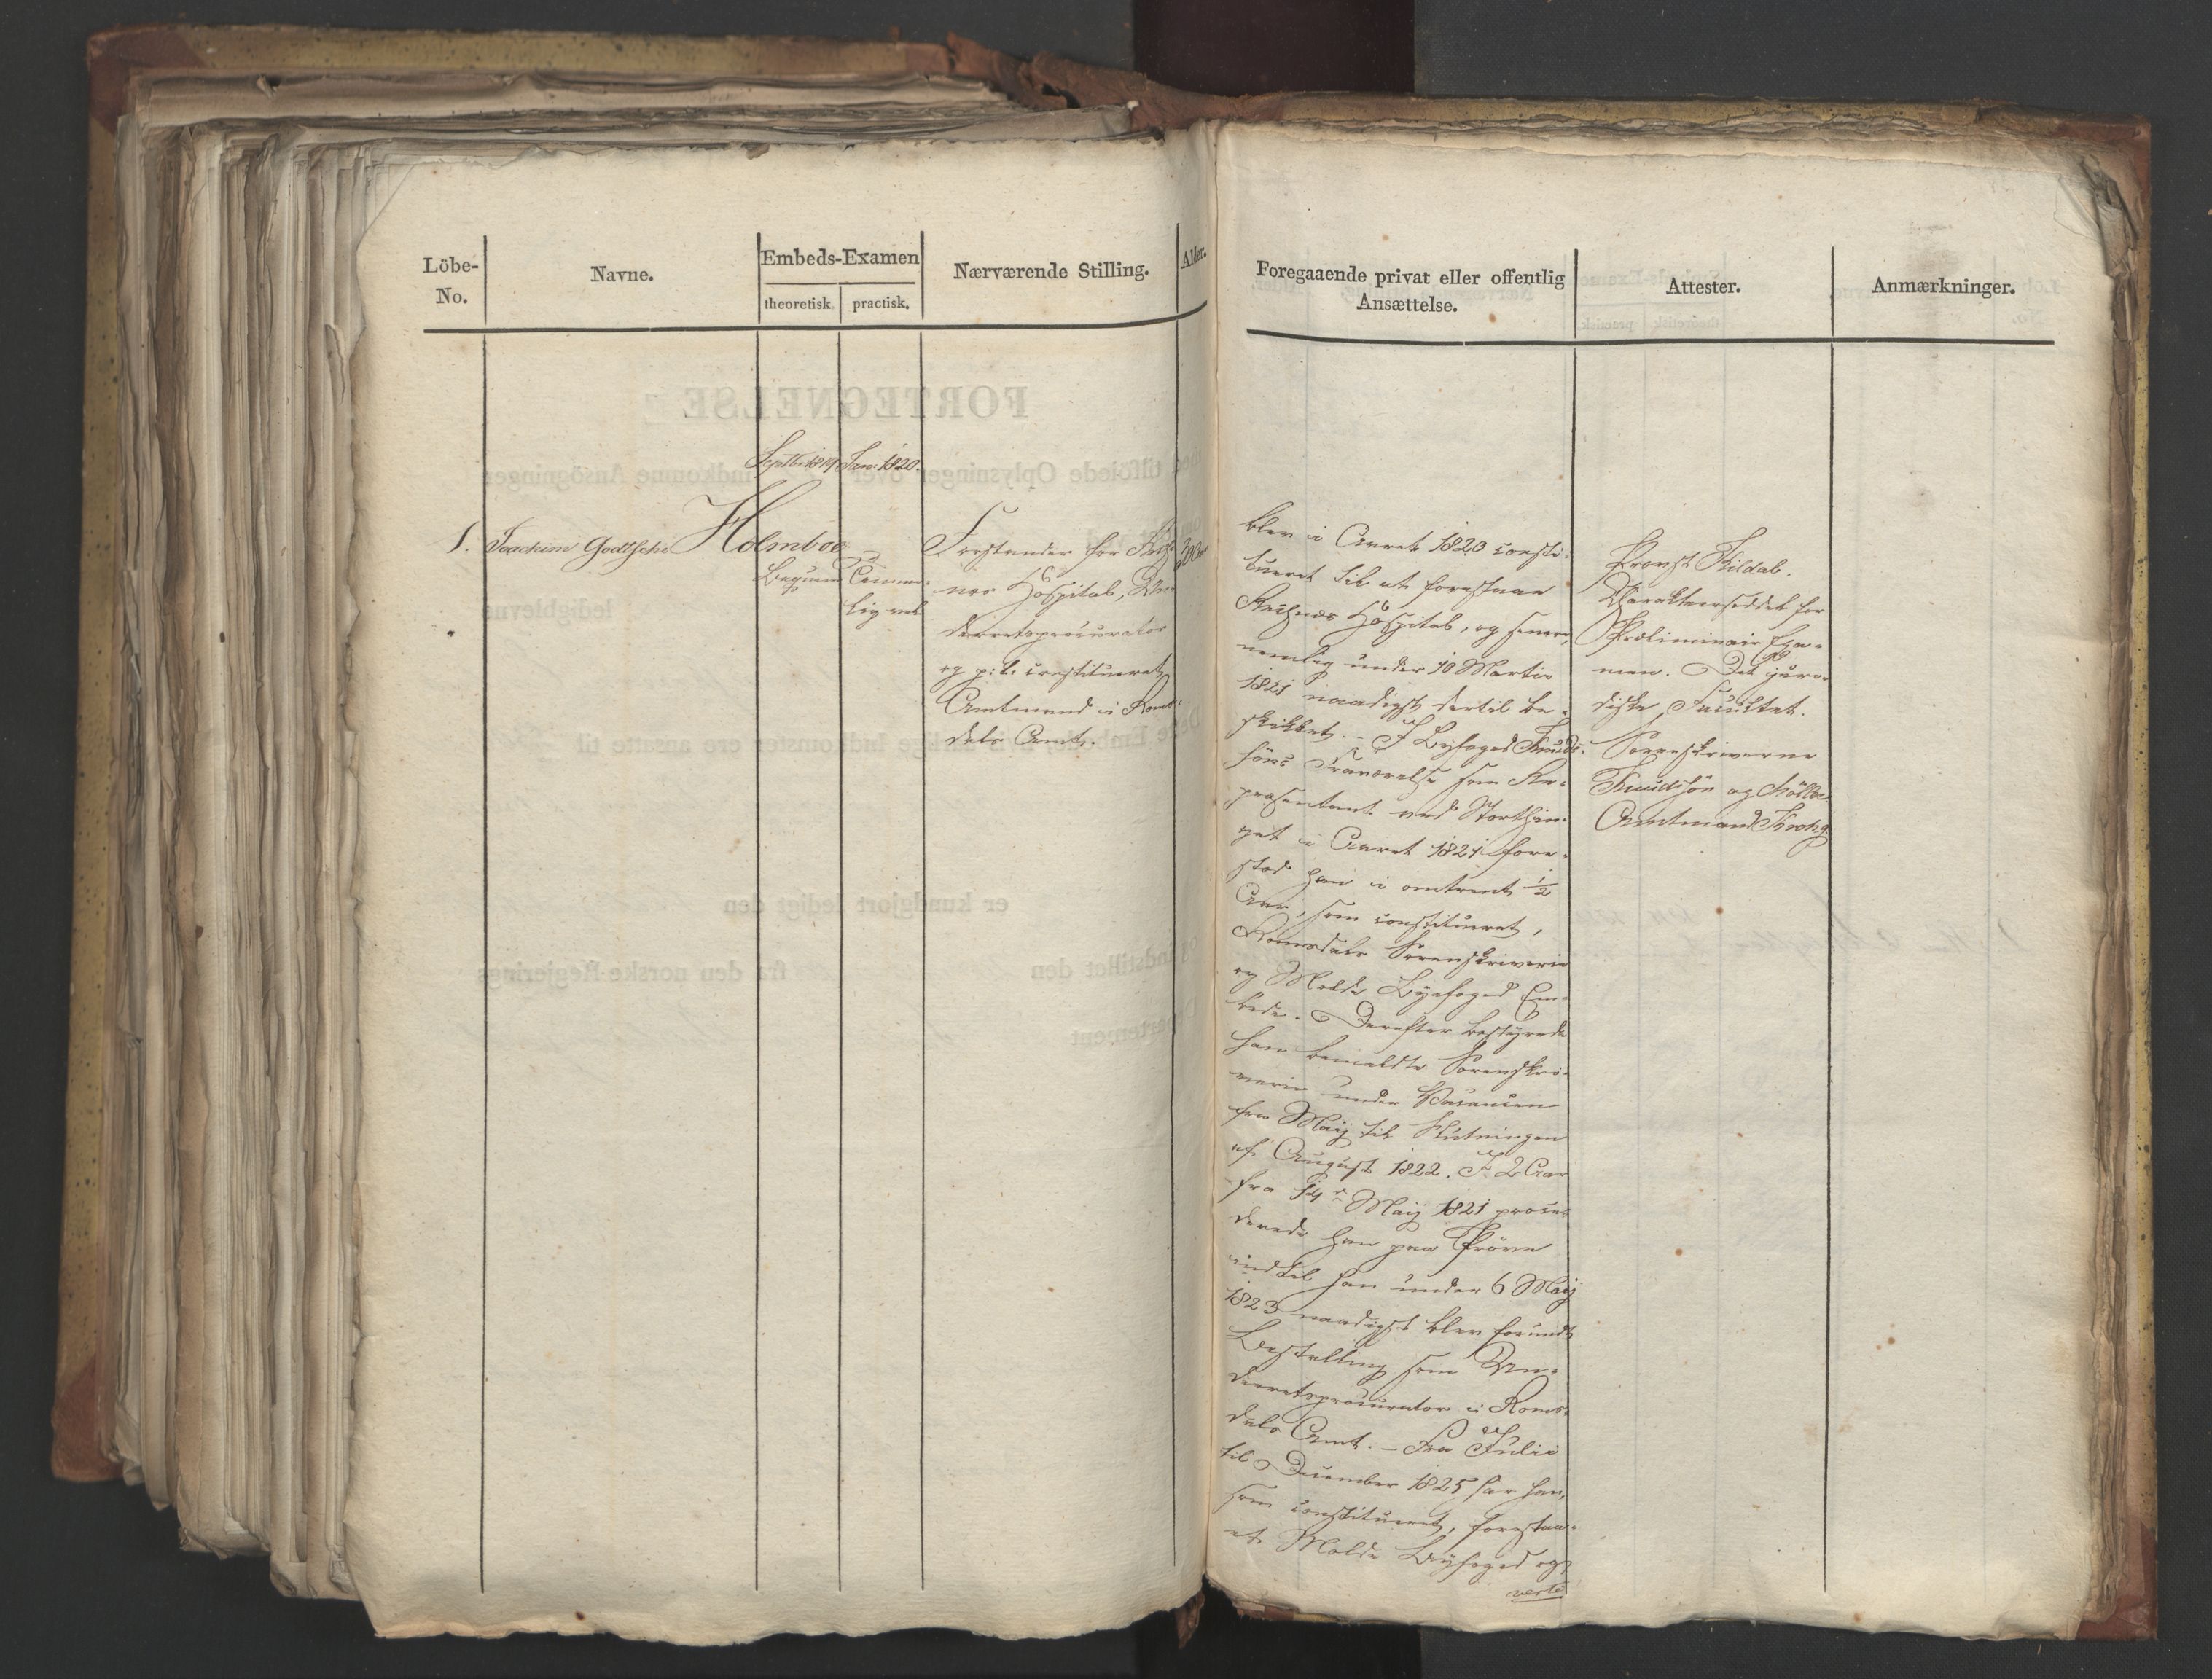 Löbe-
No.
Navne.
Embeds-Examen
theoretisk.
practisk.
Nærværende Stilling.
Alder.
Septbr 1819
Jan: 1820.
1. Joachim Godtsche Holmboe
Beqvem
Temme-
lig vel
Forstander for Rech-
næs Hospital, Un-
derretsprocurator
og p: t: constitueret
Amtmand i Roms-
dals Amt.
Foregaaende privat eller offentlig
Ansættelse.
blev i Aaret 1820 consti-
tueret til at forestaae
Rechnæs Hospital, og senere,
nemlig under 10 Martii
1821 naadigst dertil be-
skikket. – I Byfoged Knud-
søns Fraværelse som Re-
præsentant ved Storthin-
get i Aaret 1821 fore-
stod han i omtrent 1/2
Aar, som constitueret,
Romsdals Sorenskriverie
og Molde Byefoged Em-
bede. Derefter bestyrede
han bemeldte Sorenskri-
verie under Vacancen
fra Maij til Slutningen
af August 1822. I 2 Aar
fra 14de Maij 1821 proce-
derede han paa Pröve
indtil han under 6 Maij
1823 naadigst blev forundt
Bestalling som Un-
derretsprocurator i Roms-
dals Amt. – Fra Julii
til December 1825 har han,
som constitueret, forestaa-
et Molde Byfoged og
verte
Attester.
Provst Kildal.
Charakteerseddel for
Præliminair Exa-
men. Det juri-
diske Facultet.
Sorenskriverne
Knudsön og Möller
Amtmand Krohg.
Anmærkninger.